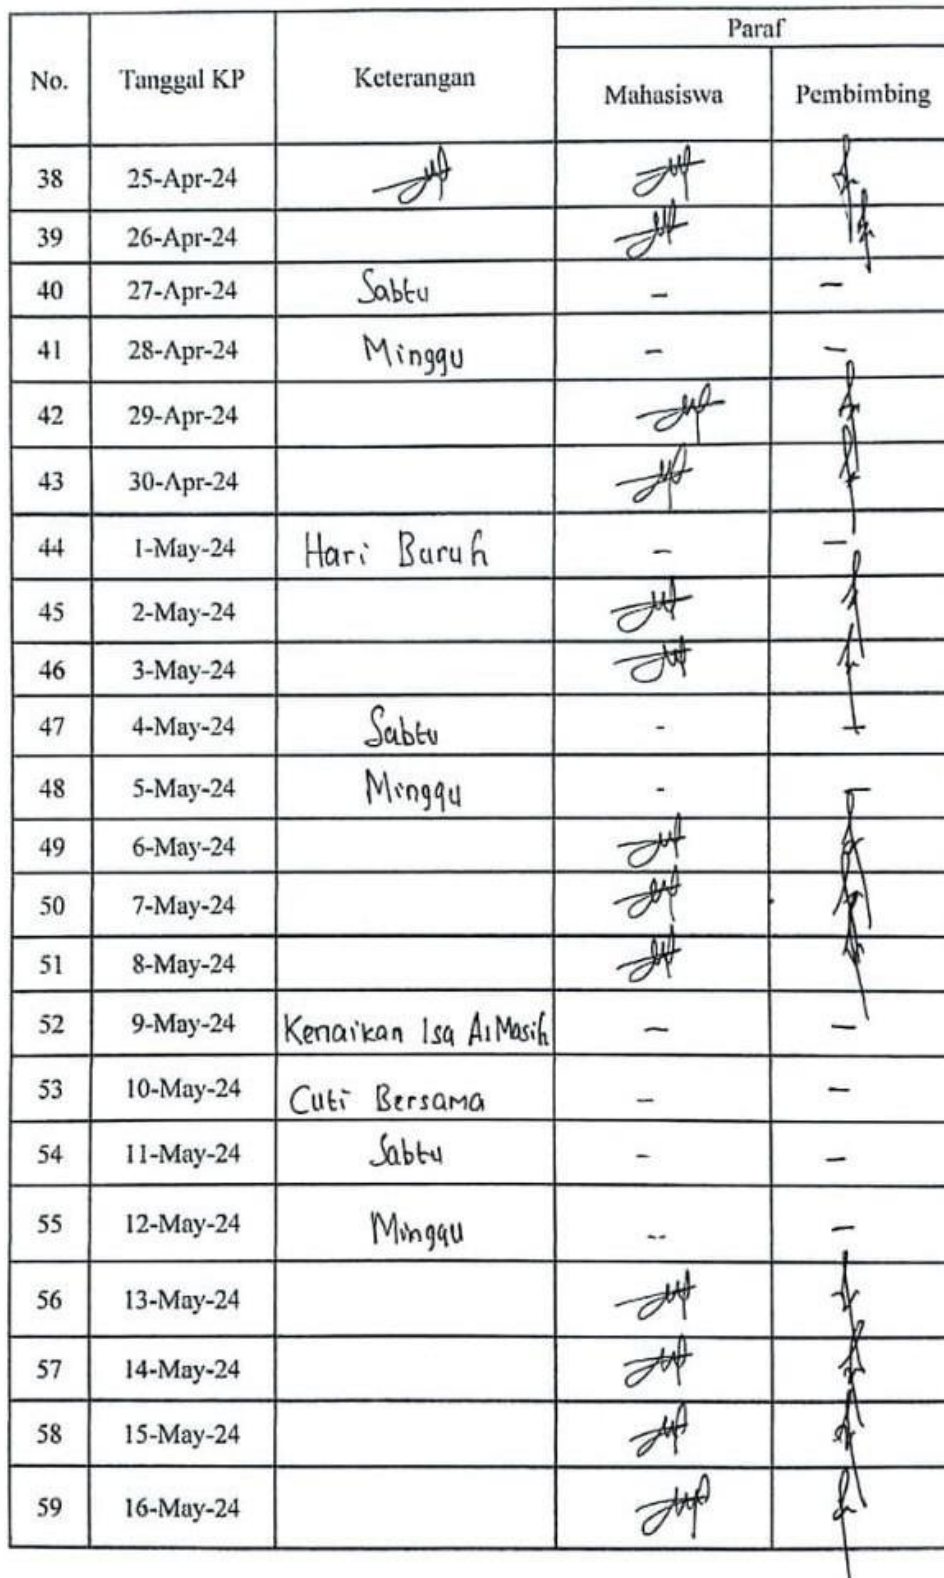 Paraf
No. Tanggal KP Keterangan
Mahasiswa Pembimbing
38 25-Apr-24
39 26-Apr-24
40 27-Apr-24 Sabtu - -
41 28-Apr-24 Minggu - -
42 29-Apr-24
43 30-Apr-24
44 1-May-24 Hari Buruh - -
45 2-May-24
46 3-May-24
47 4-May-24 Sabtu - -
48 5-May-24 Minggu - -
49 6-May-24
50 7-May-24
51 8-May-24
52 9-May-24 Kenaikan Isa Al Masih - -
53 10-May-24 Cuti Bersama - -
54 11-May-24 Sabtu - -
55 12-May-24 Minggu - -
56 13-May-24
57 14-May-24
58 15-May-24
59 16-May-24